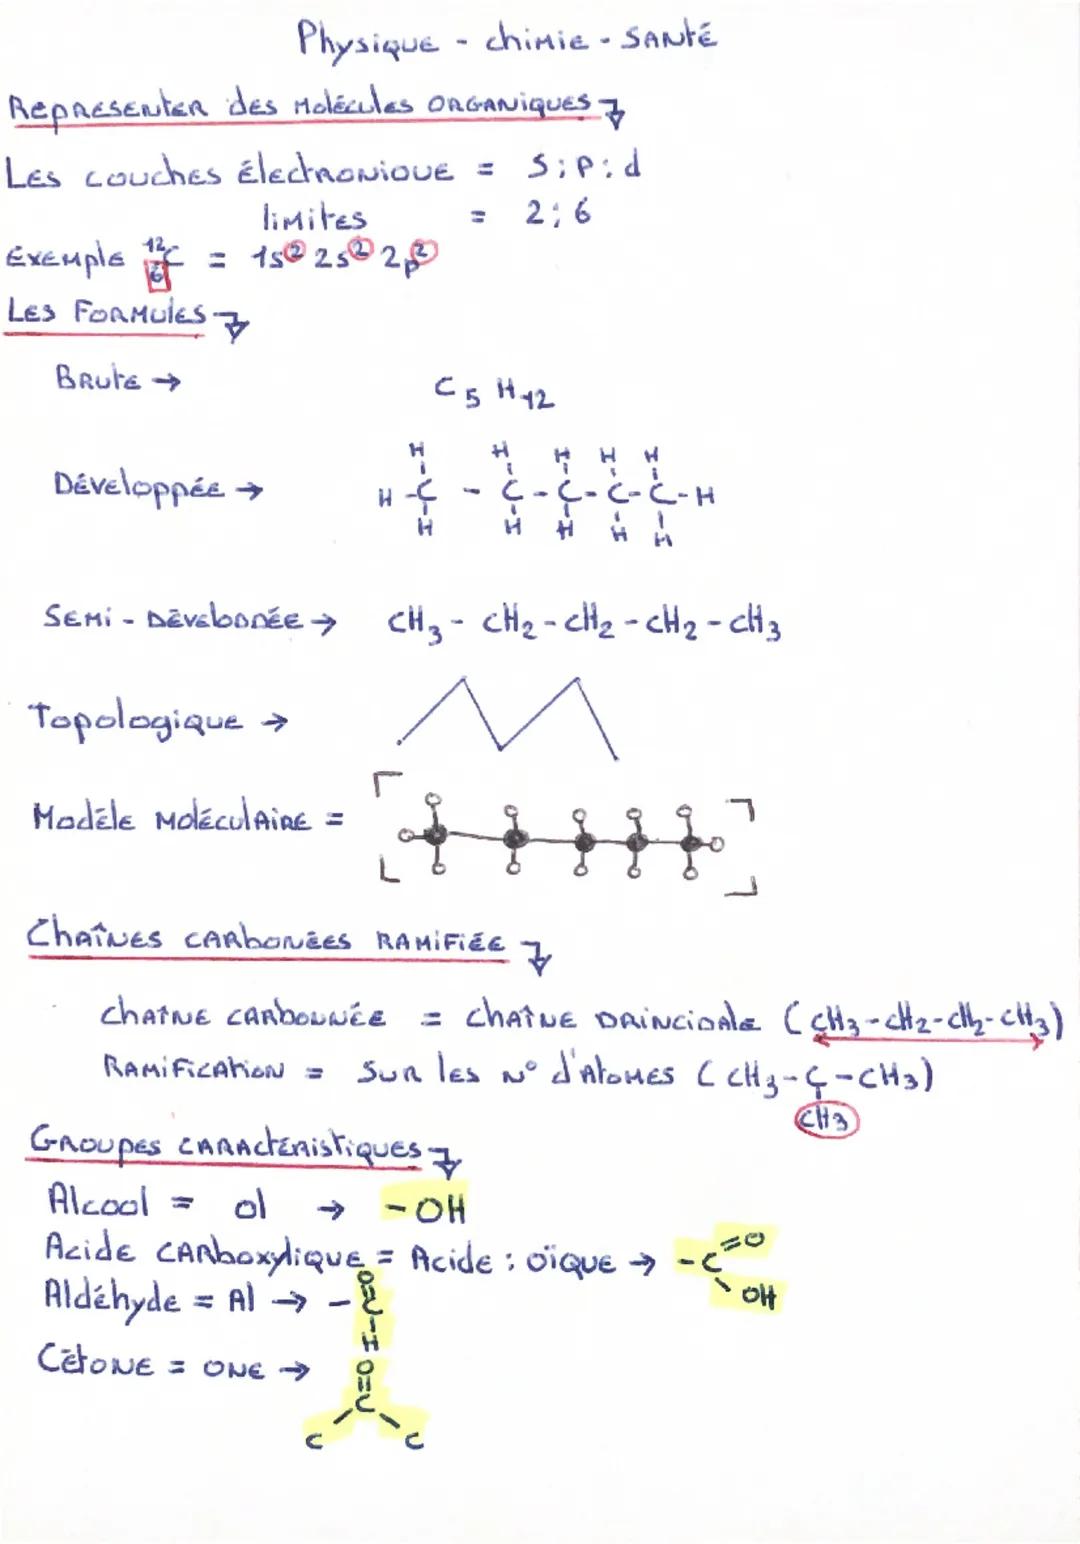 Physique - chimie - SANté
Représenter des Molécules ORGANiques
Les couches électronique = S ; P ; d
limites = 2 ; 6
Exemple ¹²₆C = 1s² 2s² 2p²
Les Formules
Brute → C₅H₁₂
H H H H H
Développée → H - C - C - C - C - C - H
H H H H H
Semi - Développée → CH₃ - CH₂ - CH₂ - CH₂ - CH₃
Topologique →
Modèle Moléculaire =
Chaînes carbonées ramifiée
chaîne carbonnée = chaîne principale (CH₃-CH₂-CH₂-CH₃)
Ramification = Sur les n° d'atomes (CH₃-C-CH₃)
CH₃
Groupes caractéristiques
Alcool = ol → -OH
Acide carboxylique = Acide : oïque → -C=O
OH
Aldéhyde = Al → -C=O
H
Cétone = one → O=C
C C